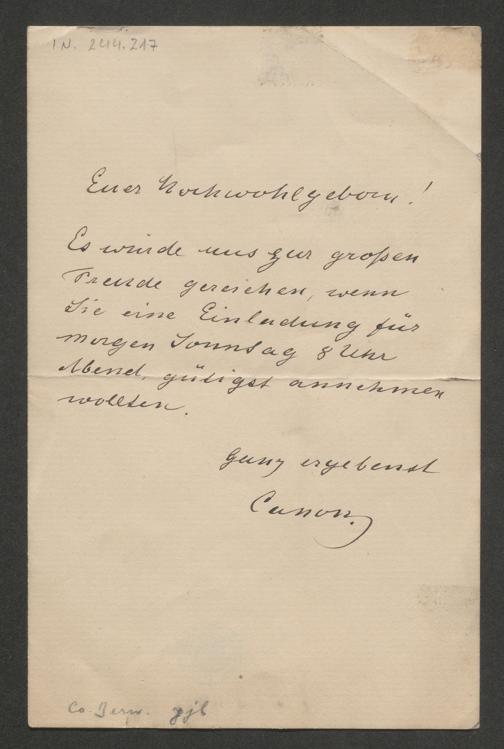 IN. 244.217
Euer Hochwohlgeborn!
Es würde uns zur großen
Freude gereichen, wenn
Sie eine Einladung für
morgen Sonntag 8 Uhr
Abend, gütigst annehmen
wollten.
Ganz ergebenst
Canon.